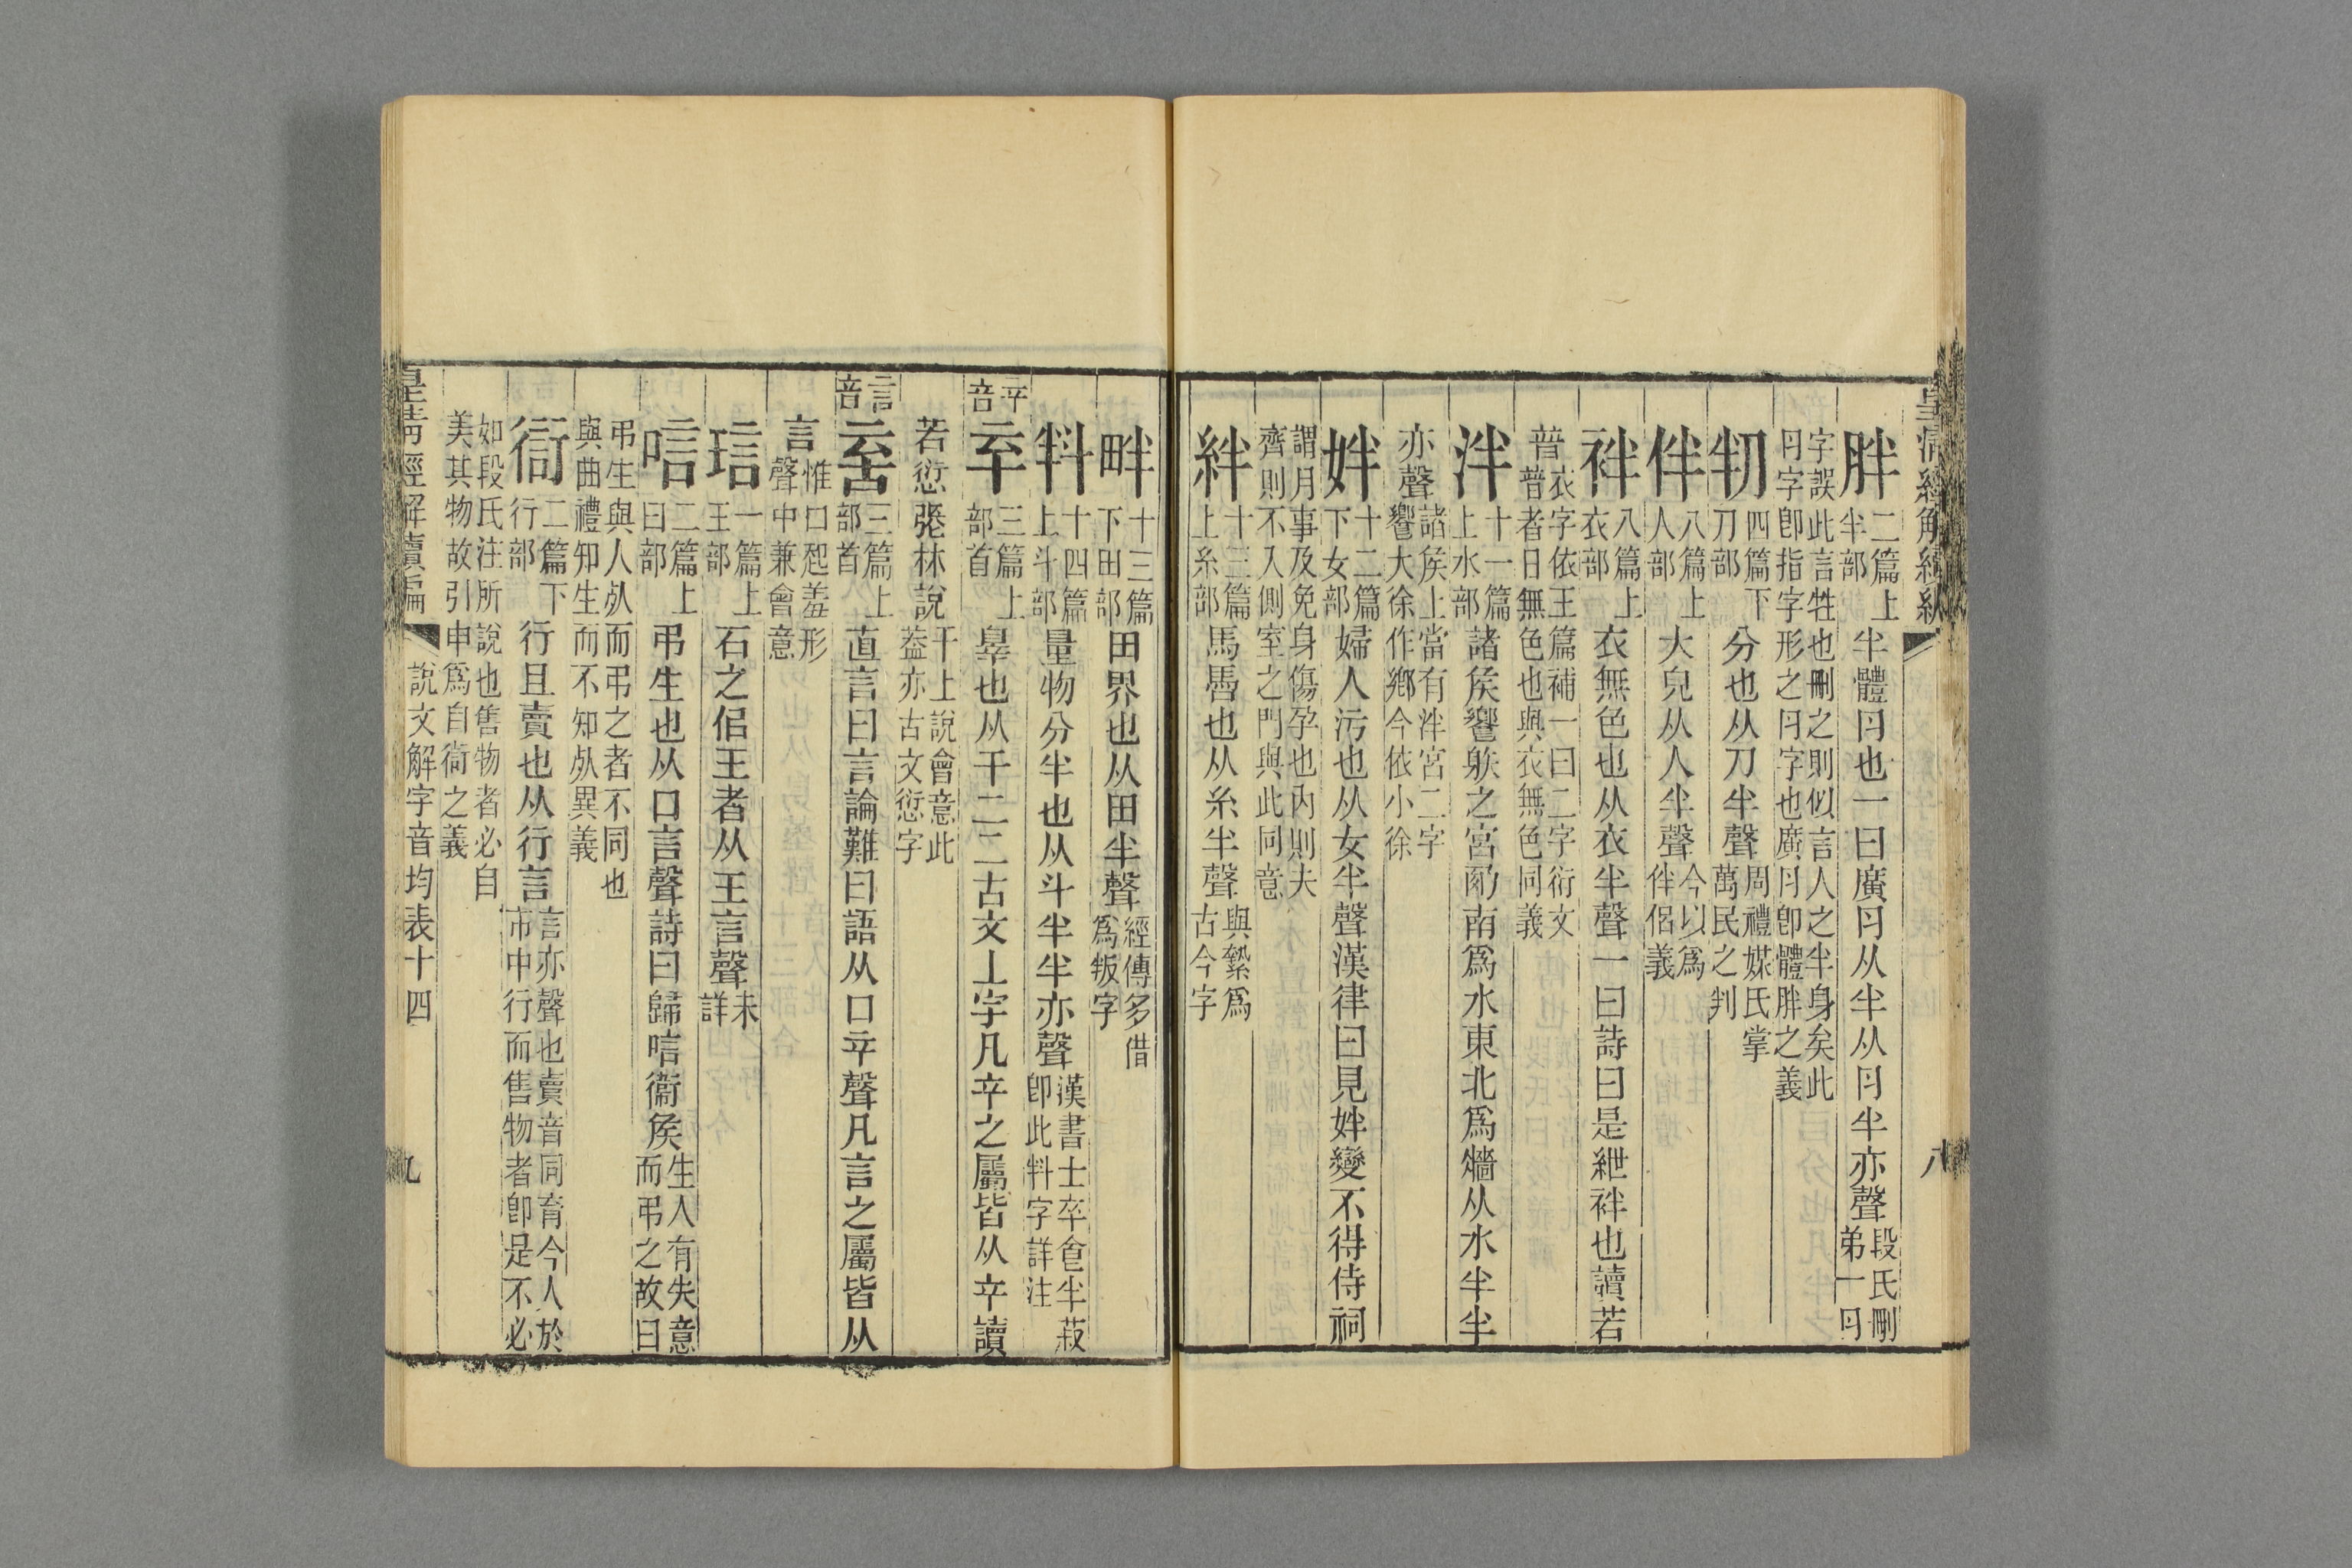 皇清經解續編
八
胖二篇上半部半體⺼也一曰廣⺼从半从⺼半亦聲段氏刪弟一⺼
字誤此言牲也刪之則似言人之半身矣此⺼字卽指字形之⺼字也廣⺼卽體胖之義
判四篇下刀部分也从刀半聲周禮媒氏掌萬民之判
伴八篇上人部大皃从人半聲今以爲伴侶義
袢八篇上衣部衣無色也从衣半聲一曰詩曰是紲袢也讀若
普衣字依王篇補一曰二字衍文普者日無色也與衣無色同義
泮十一篇上水部諸矦饗䠶之宮西南爲水東北爲牆从水半半
亦聲諸矦上當有泮宮二字饗大徐作鄉今依小徐
姅十二篇下女部婦人污也从女半聲漢律曰見姅變不得侍祠
謂月事及免身傷孕也內則夫齊則不入側室之門與此同意
絆十三篇上糸部馬馽也从糸半聲與縶爲古今字
畔十三篇下田部田界也从田半聲經傳多借爲叛字
料十四篇上斗部量物分半也从斗半半亦聲漢書士卒食半菽卽此料字詳注
䇂音䇂三篇上部首辠也从干二二古文丄字凡䇂之屬皆从䇂讀
若愆張林說干上說會意此葢亦古文愆字
言音言三篇上部首直言曰言論難曰語从口䇂聲凡言之屬皆从
言惟口起羞形聲中兼會意
琂一篇上王部石之佀王者从王言聲未詳
唁二篇上口部弔生也从口言聲詩曰歸唁衞矦生人有失意而弔之故曰
弔生與人㱙而弔之者不同也與曲禮知生而不知㱙異義
衙二篇下行部行且賣也从行言言亦聲也賣音同育今人於市中行而售物者卽是不必
如段氏注所說也售物者必自美其物故引申爲自衒之義
皇清經解續編
說文解字音均表十四
九